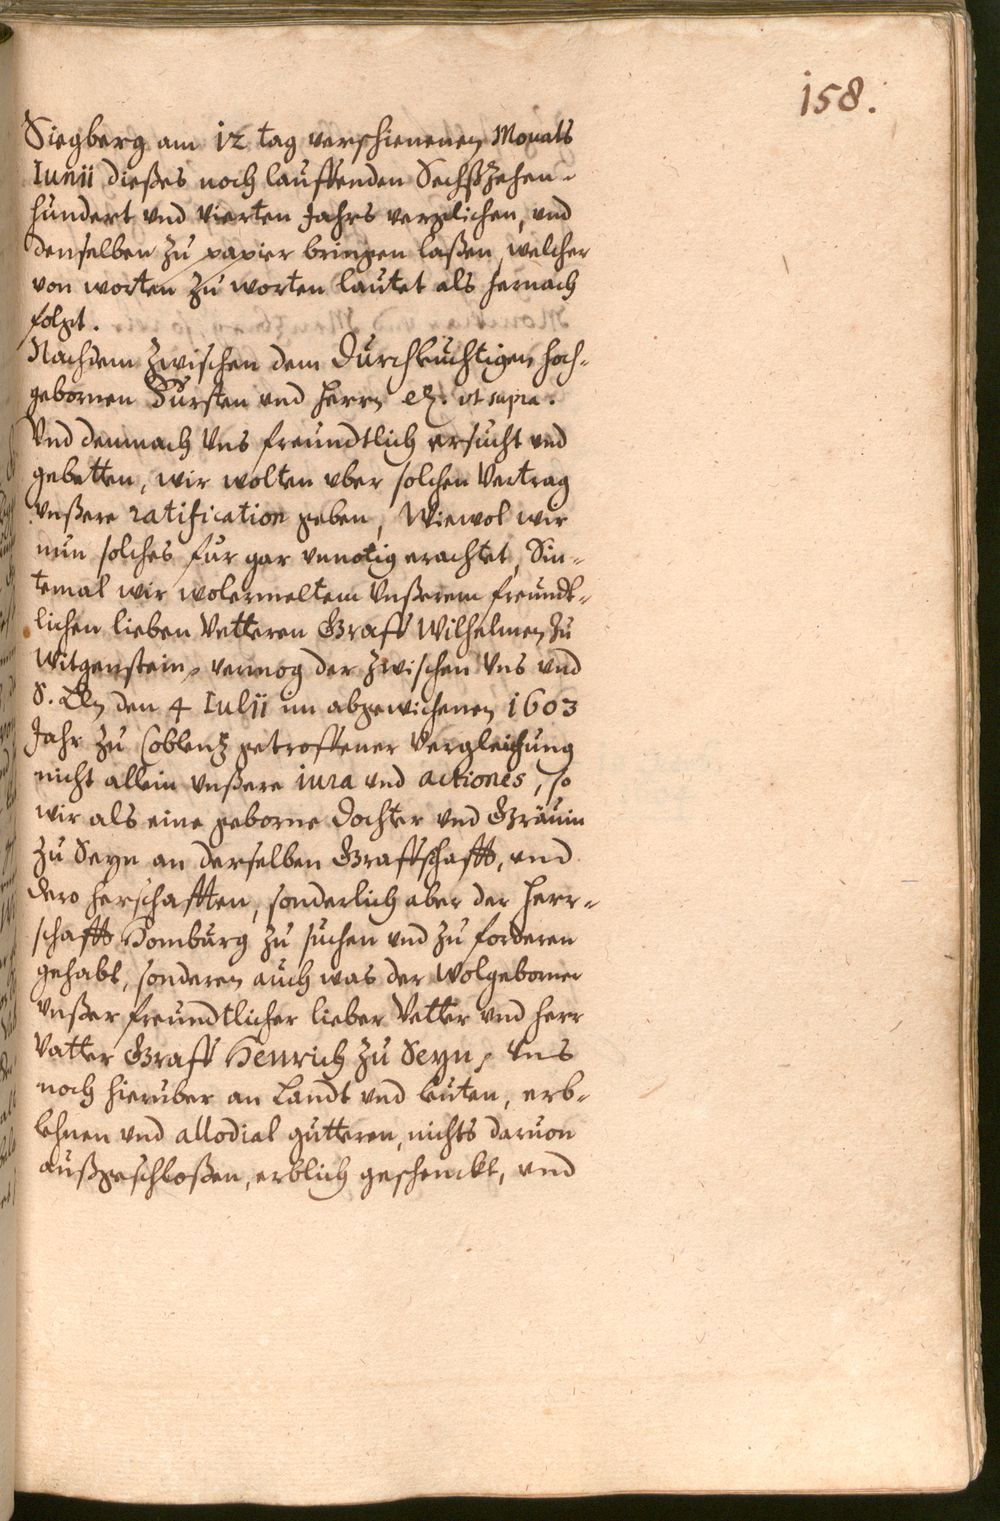 158.
Siegberg am 12 tag verschienenen Monats
Iunii dießes noch lauffenden Sechßzehen-
hundert vnd vierten Jahrs verglichen, vnd
denselben zu papier bringen laßen, welcher
von worten zu worten lautet als hernach
folgt.
Nachdem zwischen dem Durchleuchtigen hoch-
gebornen Fursten vnd Herrn etc. vt supra.
Vnd demnach Vns freundtlich ersucht vnd
gebetten, wir wolten vber solchen Vertrag
vnßere ratification geben, Wiewol wir
nun solches fur gar vnnotig erachtet, Sin-
temal wir wolermeltem Vnßerem freundt-
lichen lieben Vetteren Graff Wilhelmen zu
Witgenstein, vermog der zwischen Vns vnd
S. Lln den 4 Iulii im abgewichenen 1603
Jahr zu Coblentz getroffener Vergleichung
nicht allein vnßere iura vnd actiones, so
wir als eine geborne Dochter vnd Grävin
zu Seyn an derselben Graffschafft, vnd
dero herschafften, sonderlich aber der Herr-
schafft Homburg zu suchen vnd zu forderen
gehabt, sonderen auch was der Wolgeborner
vnßer freundtlicher lieber Vetter vnd Herr
Vatter Graff Henrich zu Seyn, Vns
noch hieruber an Landt vnd leuten, erb-
lehnen vnd allodial gutteren, nichts daruon
außgeschloßen, erblich geschenckt, vnd